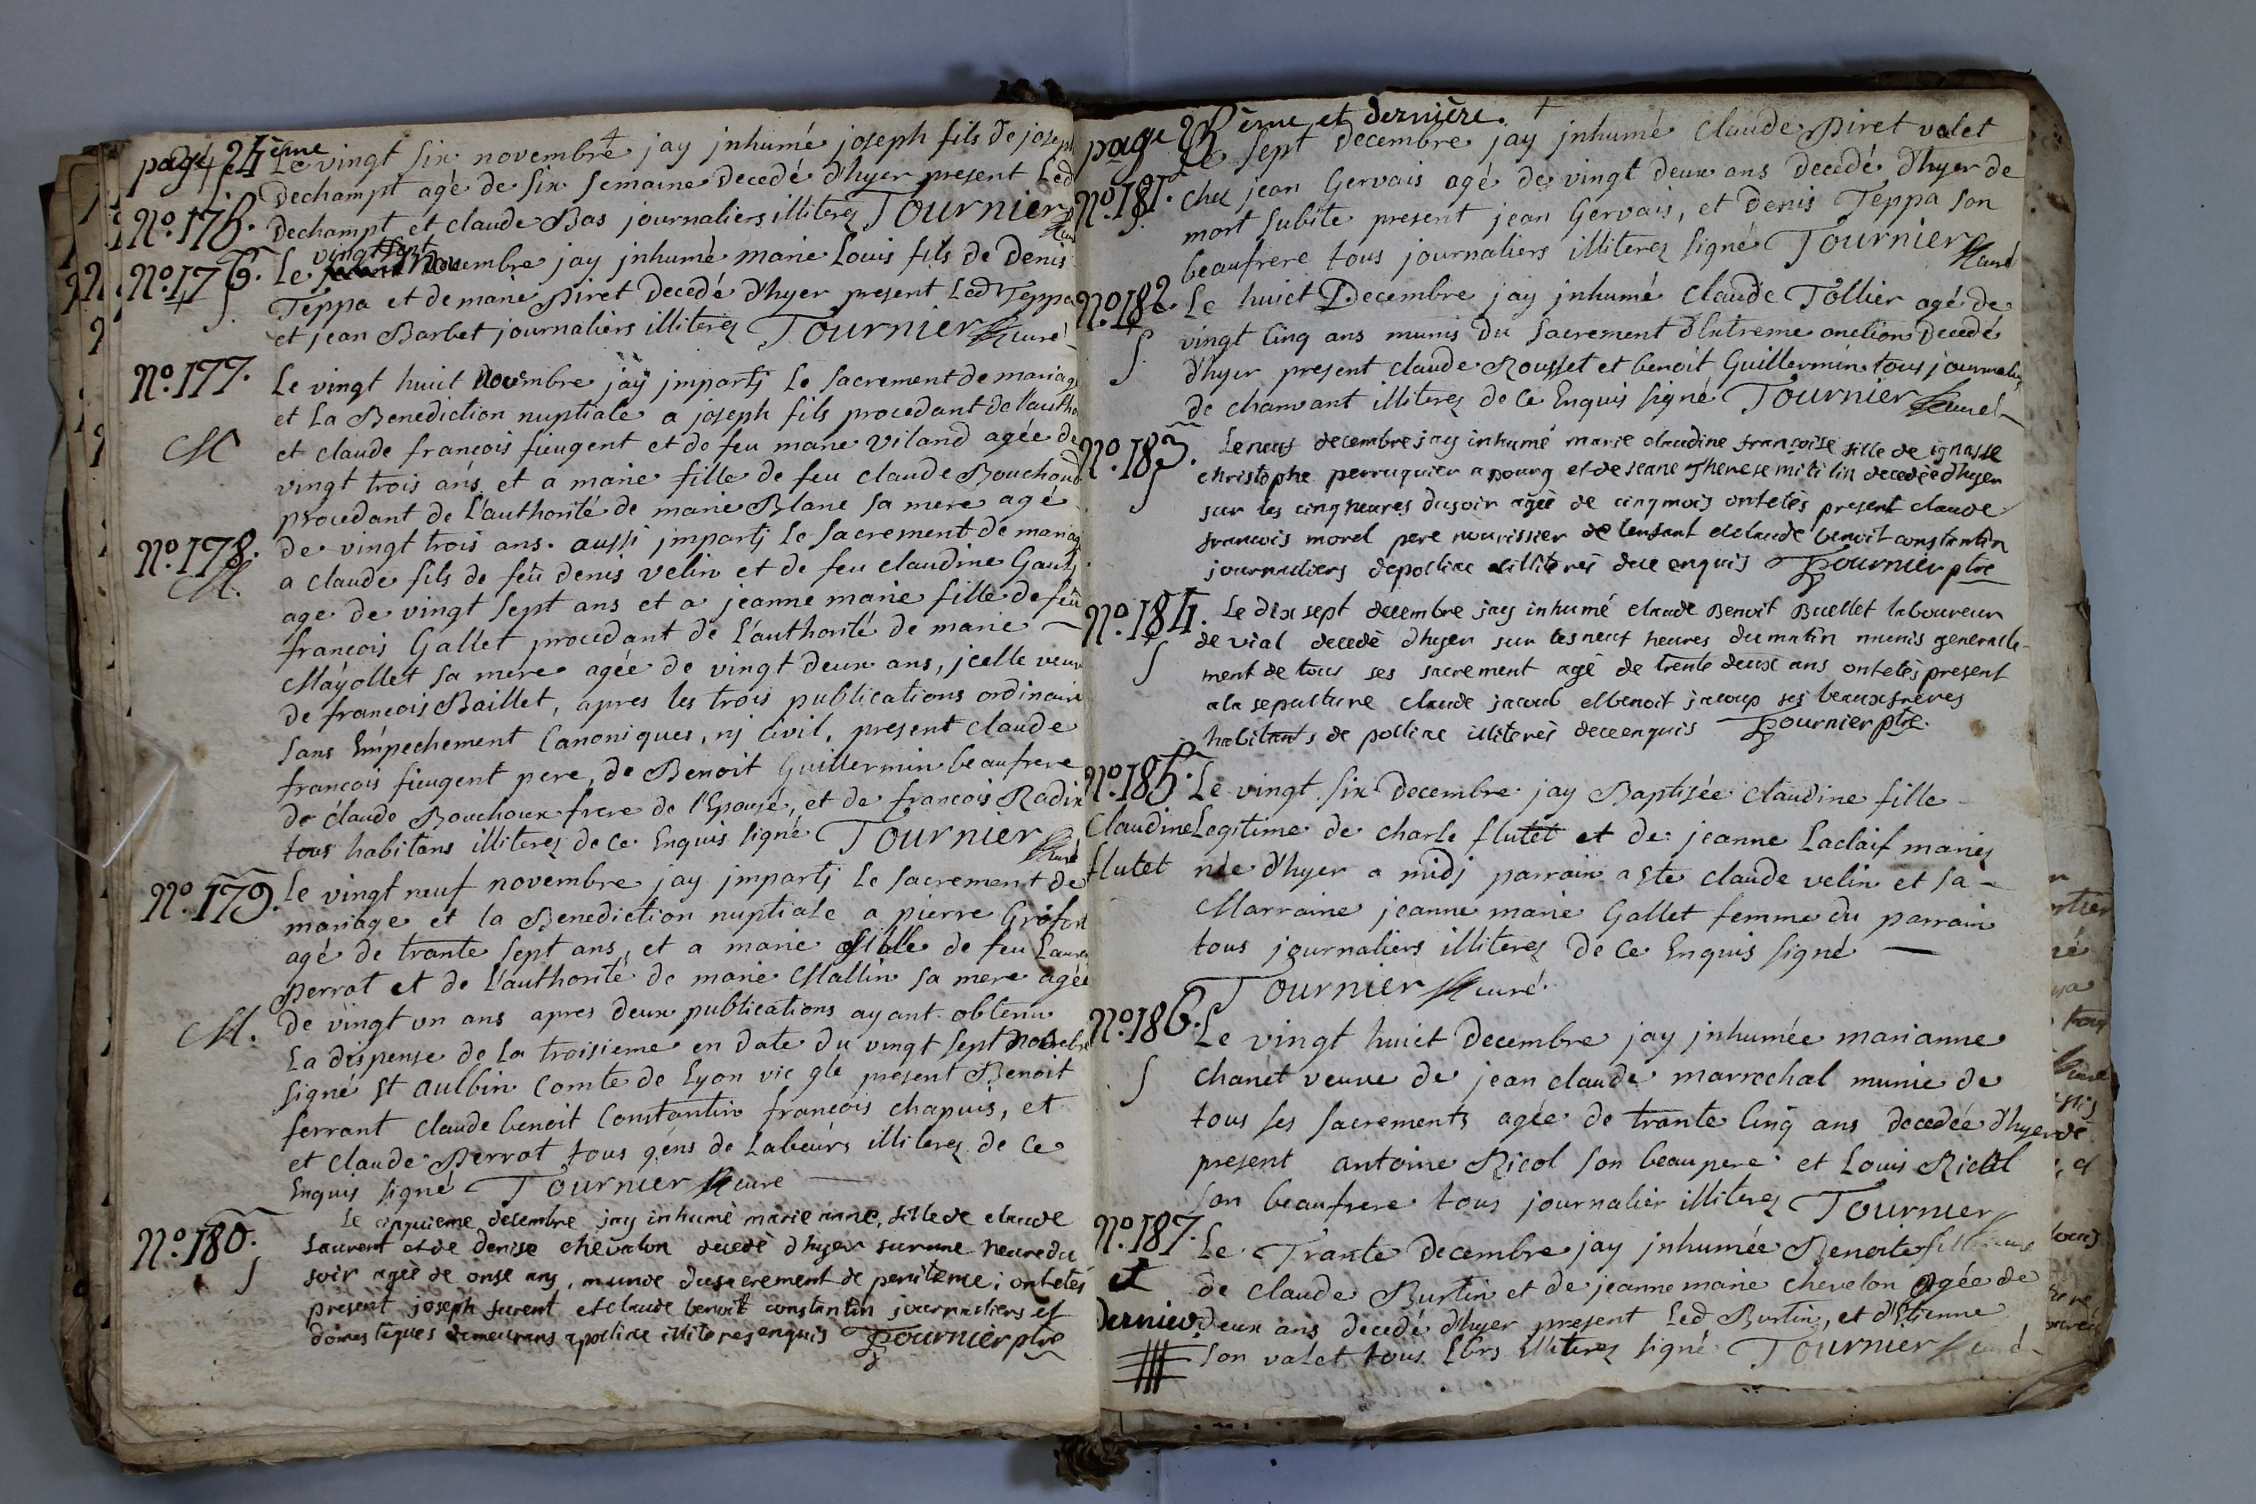 page 24ème
Le vingt six novembre jay jnhumé joseph fils de joseph
Dechampt agé de six semaine decedé d'hyer present Led
No. 175. Dechampt et claude Bas journaliers illiterez Tournier curé
vingt sept
No. 176. Le novembre jay jnhumé marie Louis fils de Denis
S. Teppa et de marie Piret decedé d'hyer present Led Teppa
et jean Barbet journaliers illiterez Tournier curé
No. 177.
Le vingt huict novembre jay jmpartj Le sacrement de mariage
et La Benediction nuptiale a joseph fils procedant de l'autho
M et claude françois fieugent et de feu marie viland agée de
vingt trois ans et a marie fille de feu claude Bouchoud
procedant de L'authorité de marie Blanc sa mere agé
No. 178. de vingt trois ans. aussi jmpartj Le sacrement de mariage
M. a claude fils de feu denis velin et de feu claudine Gautj
age de vingt sept ans et a jeanne marie fille de feu
françois Gallet procedant de L'authorité de marie
Mayollet sa mere agée de vingt deux ans, jcelle veuve
de françois Baillet, apres les trois publications ordinaire
sans Empechement Canoniques, nj Civil, present claude
françois fieugent pere, de Benoit Guillermin beaufrere
de claude Bouchoux frere de l'Epousé, et de françois Radix
tous habitans illiterez de ce Enquis signé Tournier curé
No. 179. Le vingt neuf novembre jay jmpartj Le sacrement de
mariage et la Benediction nuptiale a pierre
agé de trante sept ans, et a marie fille de feu Laurent
perrot et de L'authorité de marie Mallin sa mere agée
M. de vingt un ans apres deux publications ayant obtenu
La dispense de La troisieme en date du vingt sept novembre
signé St aulbin Comte de Lyon vic gle present Benoit
ferrant claude benoit Constantin françois chapuis, et
et claude Perrot tous gens de Labeurs illiterez de ce
Enquis signé Tournier curé
No. 180. Le cinquieme desembre jay inhumé marie anne, fille de claude
S Laurent et de denise chevalon decedé d'hyer sur une heure du
soir ageè de onse ans, munde du sacrement de penitence; ont etès
present joseph furent et claude benoit constantin journaliers et
domestiques demeurans a polliac illiteres enquis Tournier ptre
page 25ème et dernière.
Le sept decembre jay jnhumé Claude Piret valet
No. 181. chez jean Gervais agé de vingt deux ans decedé d'hyer de
S. mort subite present jean Gervais, et Denis Teppa son
beaufrere tous journaliers illiterez signé Tournier curé
No. 182. Le huict Decembre jay jnhumé Claude Tollier agé de
S. vingt Cinq ans munis du sacrement d'Extreme onction decedé
d'hyer present claude Rousset et benoit Guillermin tous journaliers
de chanvant illiterez de ce Enquis signé Tournier curé
No. 183. Le neuf decembre jay inhumé marie claudine françoise fille de ignasse
S christophe perruquier a bourg et de jeane Therese decedèe d'hyer
sur les cinq heures du soir ageè de cinq mois ont etès present claude
francois morel pere nourissier de lenfant et claude benoit constantin
journaliers de polliac illiterés de ce enquis Tournier ptre
No. 184. Le dix sept decembre jay inhumé claude Benoit Buellet laboureur
S de vial decedè d'hyer sur les neuf heures du matin munis generalle
ment de tous ses sacrement agè de trente deux ans ont etès present
a la sepulture claude jacoud et benoit jacoup ses beauxfrères
habitants de polliac illiterès de ce enquis Tournier ptre.
No. 185. Le vingt six Decembre jay Baptisée claudine fille
Claudine Legitime de charle flutet et de jeanne Laclaif mariez
flutet née d'hyer a midj parrain a ste claude velin et sa
Marraine jeanne marie Gallet femme du parrain
tous journaliers illiterez de ce Enquis signé
Tournier curé.
No. 186. Le vingt huict Decembre jay jnhumée marianne
S chanet veuve de jean claude marrechal munie de
tous ses sacrements agée de trante Cinq ans decedée d'hyer de
present antoine Ricol son beaupere et Louis Ricol
son beaufrere tous journalier illiterez Tournier
No. 187. Le Trante Decembre jay jnhumée Benoite fille
et de claude Burtin et de jeanne marie chevelon agée de
dernier. deux ans decedé d'hyer present Led Burtin, et d'Etienne
son valet tous Lbrs illiterez signé Tournier curé